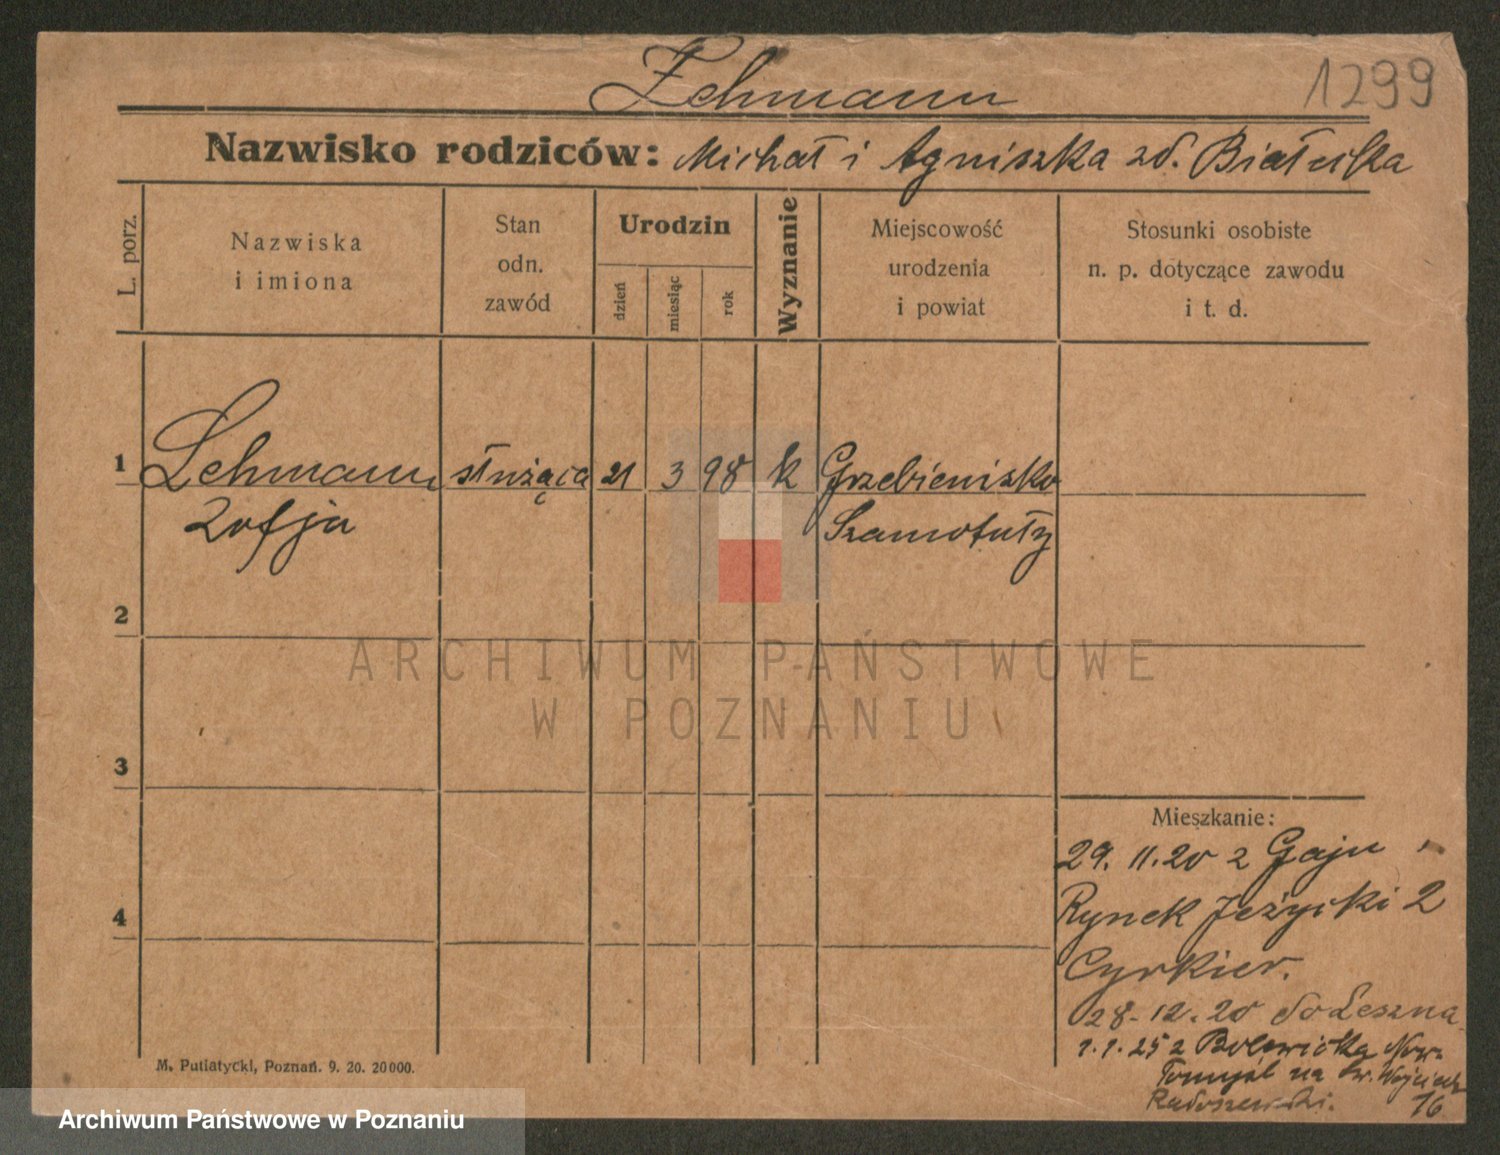 Lehmann
1299
Nazwisko rodziców: Michał i Agniszka zd. Białuska
L. porz.
Nazwiska
i imiona
Stan
odn.
zawód
Urodzin
dzień
miesiąc
rok
Wyznanie
Miejscowość
urodzenia
i powiat
Stosunki osobiste
n. p. dotyczące zawodu
i t. d.
1 Lehmann służąca 21 3 98 k Grzebienisko
Zofja Szamotuły
2
ARCHIWUM PAŃSTWOWE
W POZNANIU
3
4
Mieszkanie:
29. 11. 20 z Gaju
Rynek Jeżycki 2
Cyrkier.
28-12. 20 do Leszna
1.1.25 z Now-
Tomyśl na św. Wojciech
Radoszewski. 16
M. Putiatycki, Poznań. 9. 20. 20000.
Archiwum Państwowe w Poznaniu